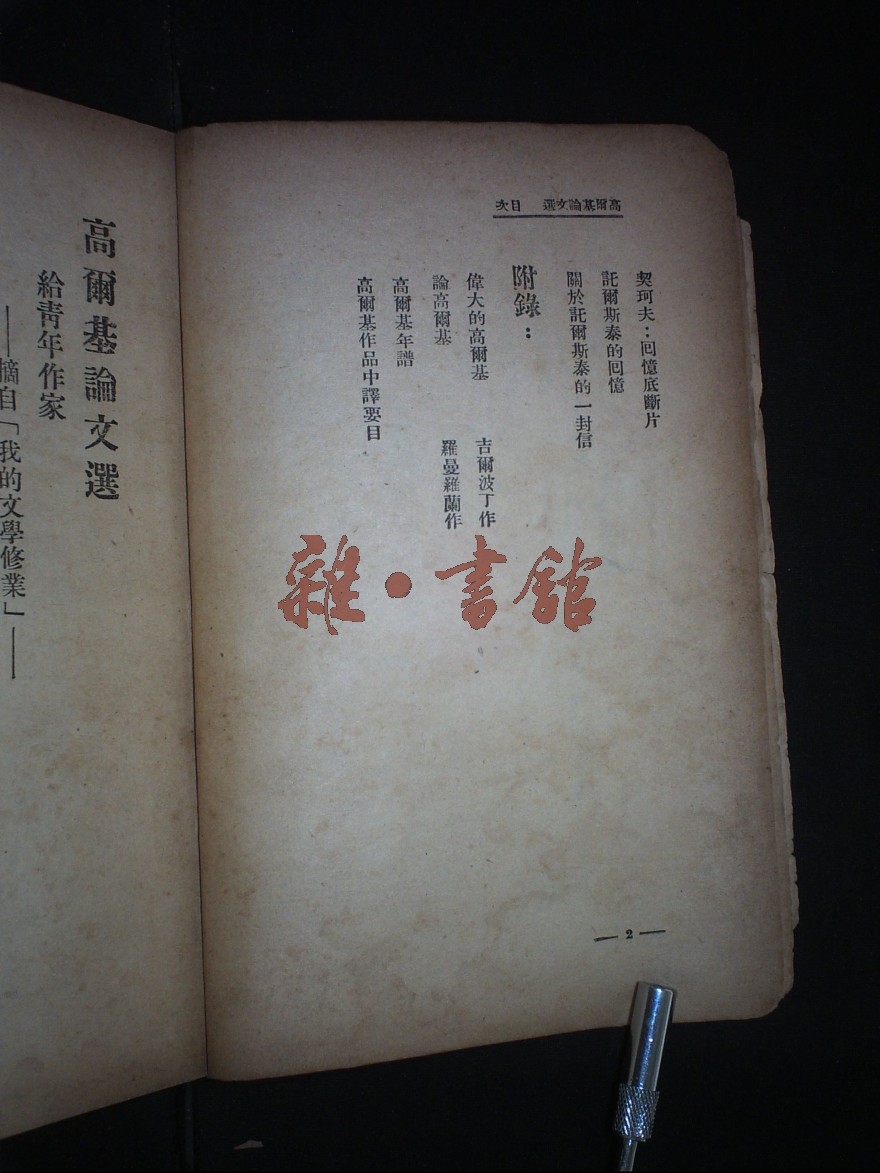 高爾基論文選　目次
契珂夫：回憶底斷片
託爾斯泰的回憶
關於託爾斯泰的一封信
附錄：
偉大的高爾基　吉爾波丁作
論高爾基　羅曼羅蘭作
高爾基年譜
高爾基作品中譯要目
— 2 —
高爾基論文選
給青年作家
——摘自「我的文學修業」——
雜·書館